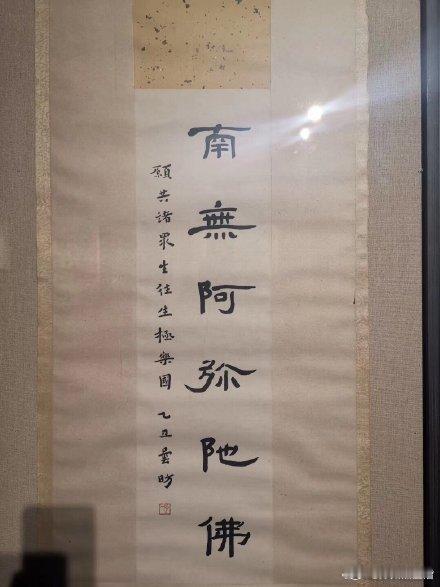 南無阿弥陁佛
願共諸眾生往生極樂國 乙丑曇昉